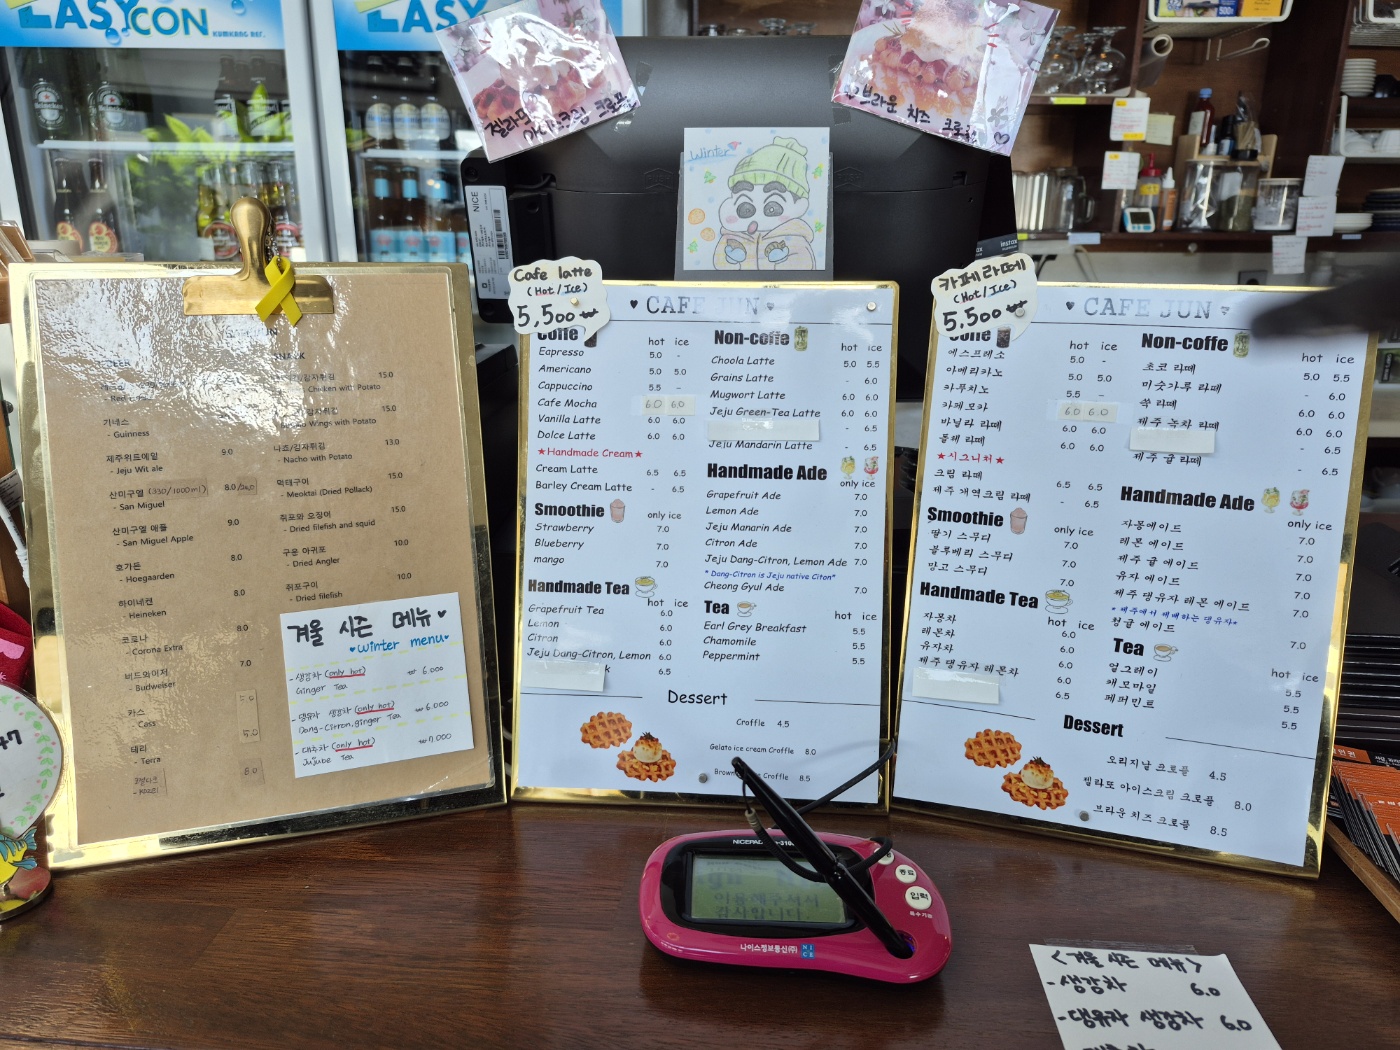 EASY CON
KUMKANG REF.
EASY CON
젤라또
아이스크림 크로플
브라운 치즈 크로플
Winter
NICE
instax
SNACK
BEER
감자튀김 15.0
Chicken with Potato
감자튀김 15.0
Wings with Potato
기네스
- Guinness
나쵸/감자튀김 13.0
- Nacho with Potato
제주위트에일 9.0
- Jeju Wit ale
먹태구이 15.0
- Meoktai (Dried Pollack)
산미구엘 (330/1000ml) 8.0
- San Miguel
쥐포와 오징어 15.0
- Dried filefish and squid
산미구엘 애플 9.0
- San Miguel Apple
구운 아귀포 10.0
- Dried Angler
호가든 8.0
- Hoegaarden
쥐포구이 10.0
- Dried filefish
하이네켄 8.0
- Heineken
코로나 8.0
- Corona Extra
버드와이저 7.0
- Budweiser
카스 5.0
- Cass
테라 5.0
- Terra
8.0
겨울 시즌 메뉴
winter menu
- 생강차 (only hot) ₩ 6.000
Ginger Tea
- 댕유자 생강차 (only hot) ₩6.000
Dang-Citron,ginger Tea
- 대추차 (only hot) ₩7,000
Jujube Tea
Cafe latte
(Hot/Ice)
5,500₩
♥ CAFE JUN ♥
Coffe
hot ice
Espresso 5.0 -
Americano 5.0 5.0
Cappuccino 5.5 -
Cafe Mocha 6.0 6.0
Vanilla Latte 6.0 6.0
Dolce Latte 6.0 6.0
★Handmade Cream★
Cream Latte 6.5 6.5
Barley Cream Latte - 6.5
Smoothie
only ice
Strawberry 7.0
Blueberry 7.0
mango 7.0
Handmade Tea
hot ice
Grapefruit Tea 6.0
Lemon 6.0
Citron 6.0
Jeju Dang-Citron, Lemon 6.0
k 6.5
Non-coffe
hot ice
Choola Latte 5.0 5.5
Grains Latte - 6.0
Mugwort Latte 6.0 6.0
Jeju Green-Tea Latte 6.0 6.0
- 6.5
Jeju Mandarin Latte - 6.5
Handmade Ade
only ice
Grapefruit Ade 7.0
Lemon Ade 7.0
Jeju Manarin Ade 7.0
Citron Ade 7.0
Jeju Dang-Citron, Lemon Ade 7.0
* Dang-Citron is Jeju native Citon*
Cheong Gyul Ade 7.0
Tea
hot ice
Earl Grey Breakfast 5.5
Chamomile 5.5
Peppermint 5.5
Dessert
Croffle 4.5
Gelato ice cream Croffle 8.0
Brown Croffle 8.5
카페라떼
(Hot/Ice)
5.500₩
♥ CAFE JUN ♥
Coffe
hot ice
에스프레소 5.0 -
아메리카노 5.0 5.0
카푸치노 5.5 -
카페모카 6.0 6.0
바닐라 라떼 6.0 6.0
돌체 라떼 6.0 6.0
★시그니처★
크림 라떼 6.5 6.5
제주 개역크림 라떼 - 6.5
Smoothie
only ice
딸기 스무디 7.0
블루베리 스무디 7.0
망고 스무디 7.0
Handmade Tea
hot ice
자몽차 6.0
레몬차 6.0
유자차 6.0
제주 댕유자 레몬차 6.0
6.5
Non-coffe
hot ice
초코 라떼 5.0 5.5
미숫가루 라떼 - 6.0
쑥 라떼 6.0 6.0
제주 녹차 라떼 6.0 6.0
- 6.5
제주 귤 라떼 - 6.5
Handmade Ade
only ice
자몽에이드 7.0
레몬 에이드 7.0
제주 귤 에이드 7.0
유자 에이드 7.0
제주 댕유자 레몬 에이드 7.0
* 제주에서 재배하는 댕유자*
청귤 에이드 7.0
Tea
hot ice
얼그레이 5.5
캐모마일 5.5
페퍼민트 5.5
Dessert
오리지날 크로플 4.5
젤라또 아이스크림 크로플 8.0
브라운 치즈 크로플 8.5
NICEPAD
이용해주셔서
감사합니다.
정정
입력
특수기능
나이스정보통신(주)
NICE
<겨울 시즌 메뉴>
- 생강차 6.0
- 댕유자 생강차 6.0